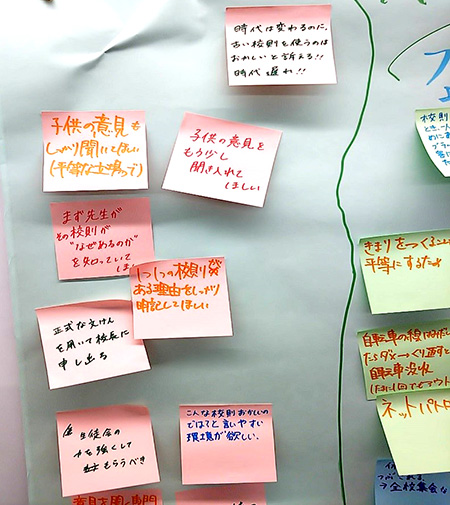 時代は変わるのに、
古い校則を使うのは
おかしいと訴える!!
時代遅れ!!
子供の意見も
しっかり聞いてほしい
(平等な立場で)
子供の意見を
もう少し
聞き入れて
ほしい
まず先生が
その校則が
"なぜあるのか"
を知っていて
1つ1つの校則が
ある理由をしっかり
明記してほしい
正式な文けん
を用いて校長に
申し出る
生徒会の
力を強くして
もらうべき
こんな校則おかしいの
ではてと言いやすい
環境が欲しい。
校則
とき、
きまりをつくること
平等にするため
自転車の
たらダメ→くり返すと
自転車没収
ネットパトロ
→全校集会